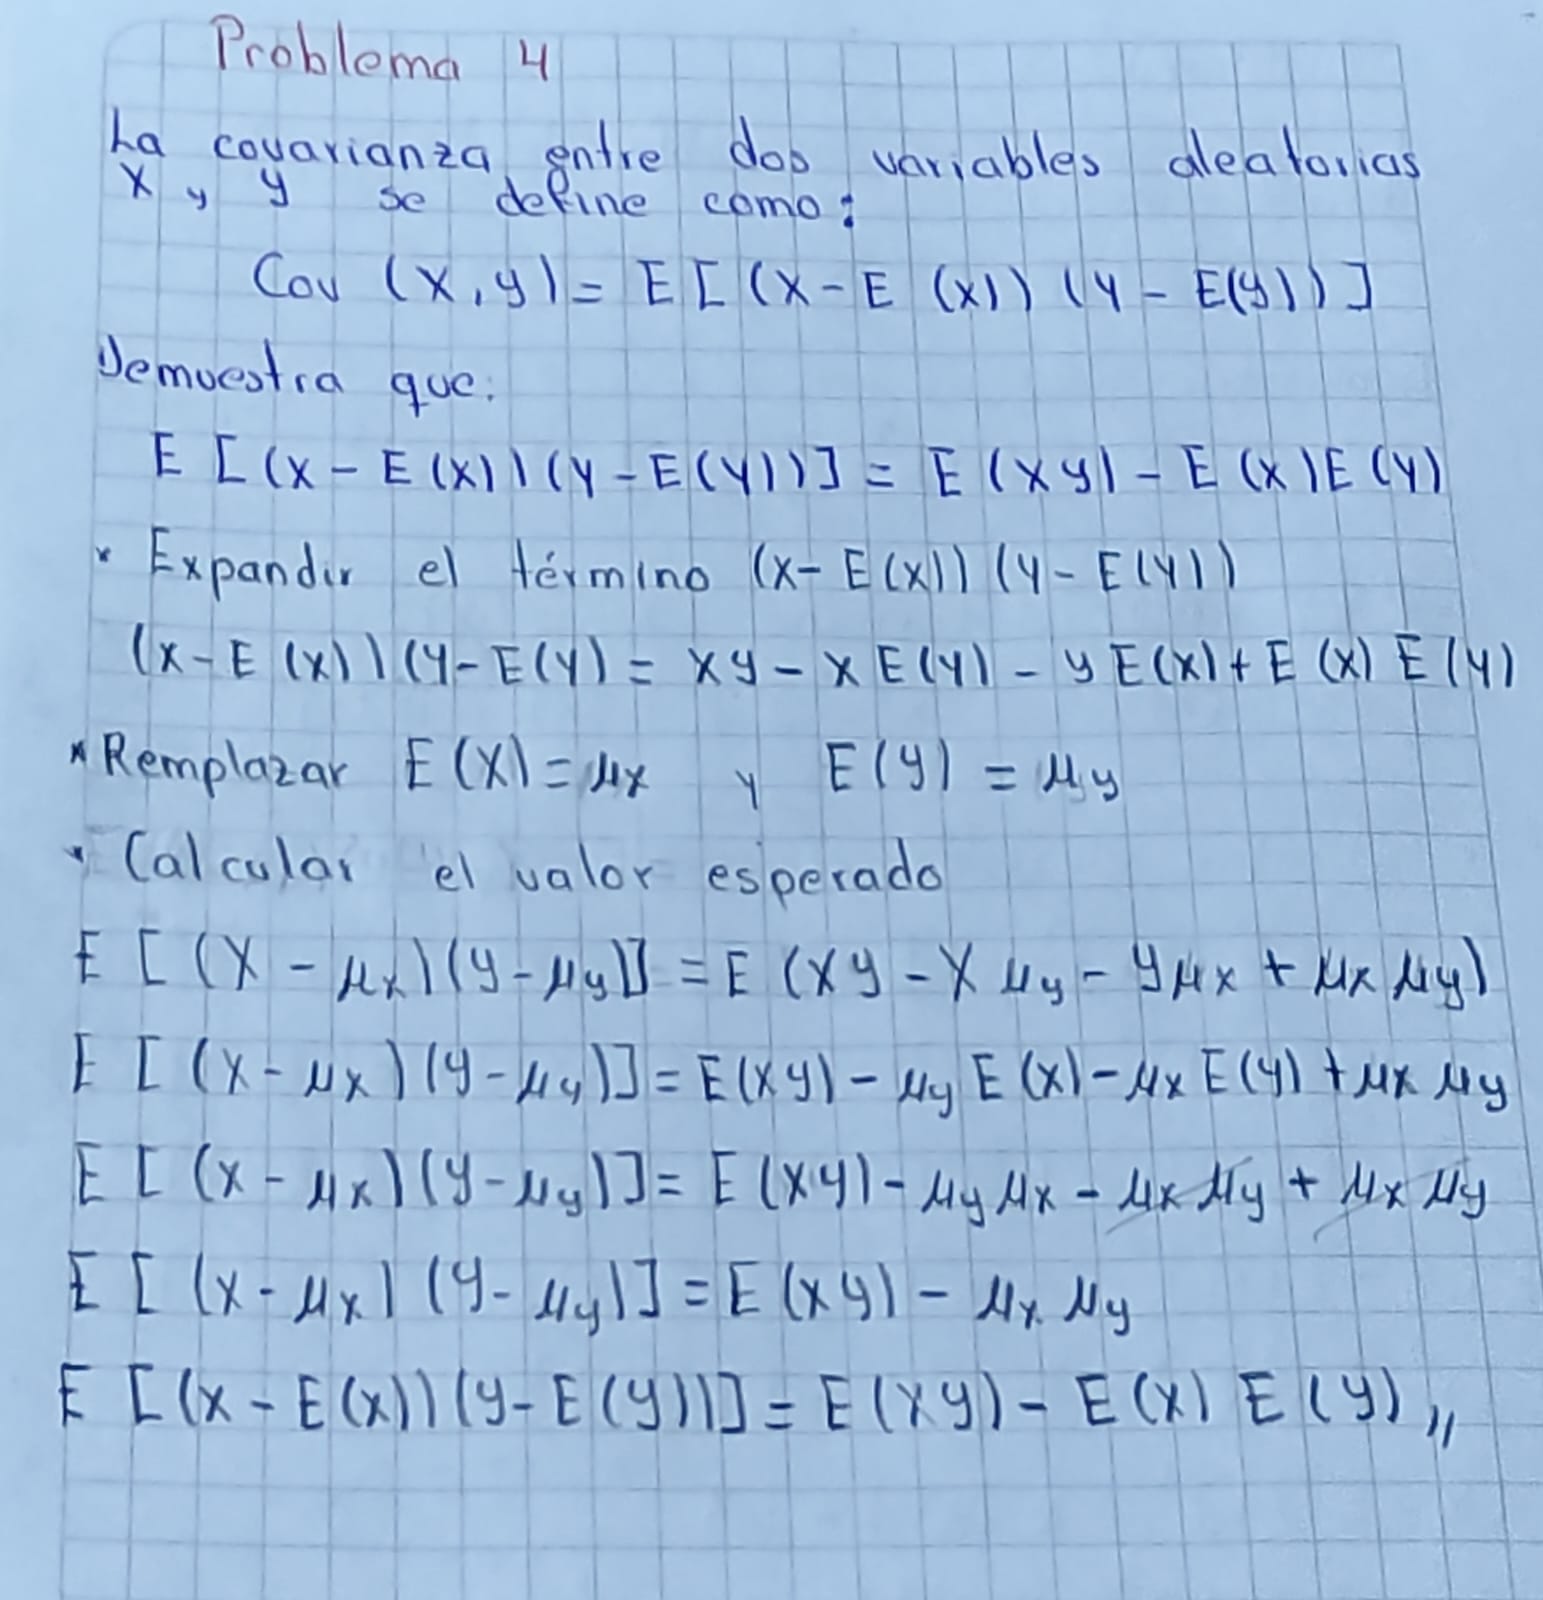 Problema 4
La covarianza entre dos variables aleatorias
X y Y se define como:
Cov (X,Y) = E [ (X - E (X)) (Y - E(Y)) ]
Demuestra que:
E [(X - E(X))(Y - E(Y))] = E(XY) - E(X)E(Y)
* Expandir el término (X - E(X)) (Y - E(Y))
(X - E(X))(Y - E(Y) = XY - X E(Y) - Y E(X) + E(X) E(Y)
* Remplazar E(X) = μx y E(Y) = μy
* Calcular el valor esperado
E [(X - μx)(Y - μy)] = E (XY - X μy - Y μx + μx μy)
E [(X - μx)(Y - μy)] = E(XY) - μy E(X) - μx E(Y) + μx μy
E [(X - μx)(Y - μy)] = E(XY) - μy μx - μx μy + μx μy
E [(X - μx) (Y - μy)] = E(XY) - μx μy
E [(X - E(X))(Y - E(Y))] = E(XY) - E(X) E(Y) //